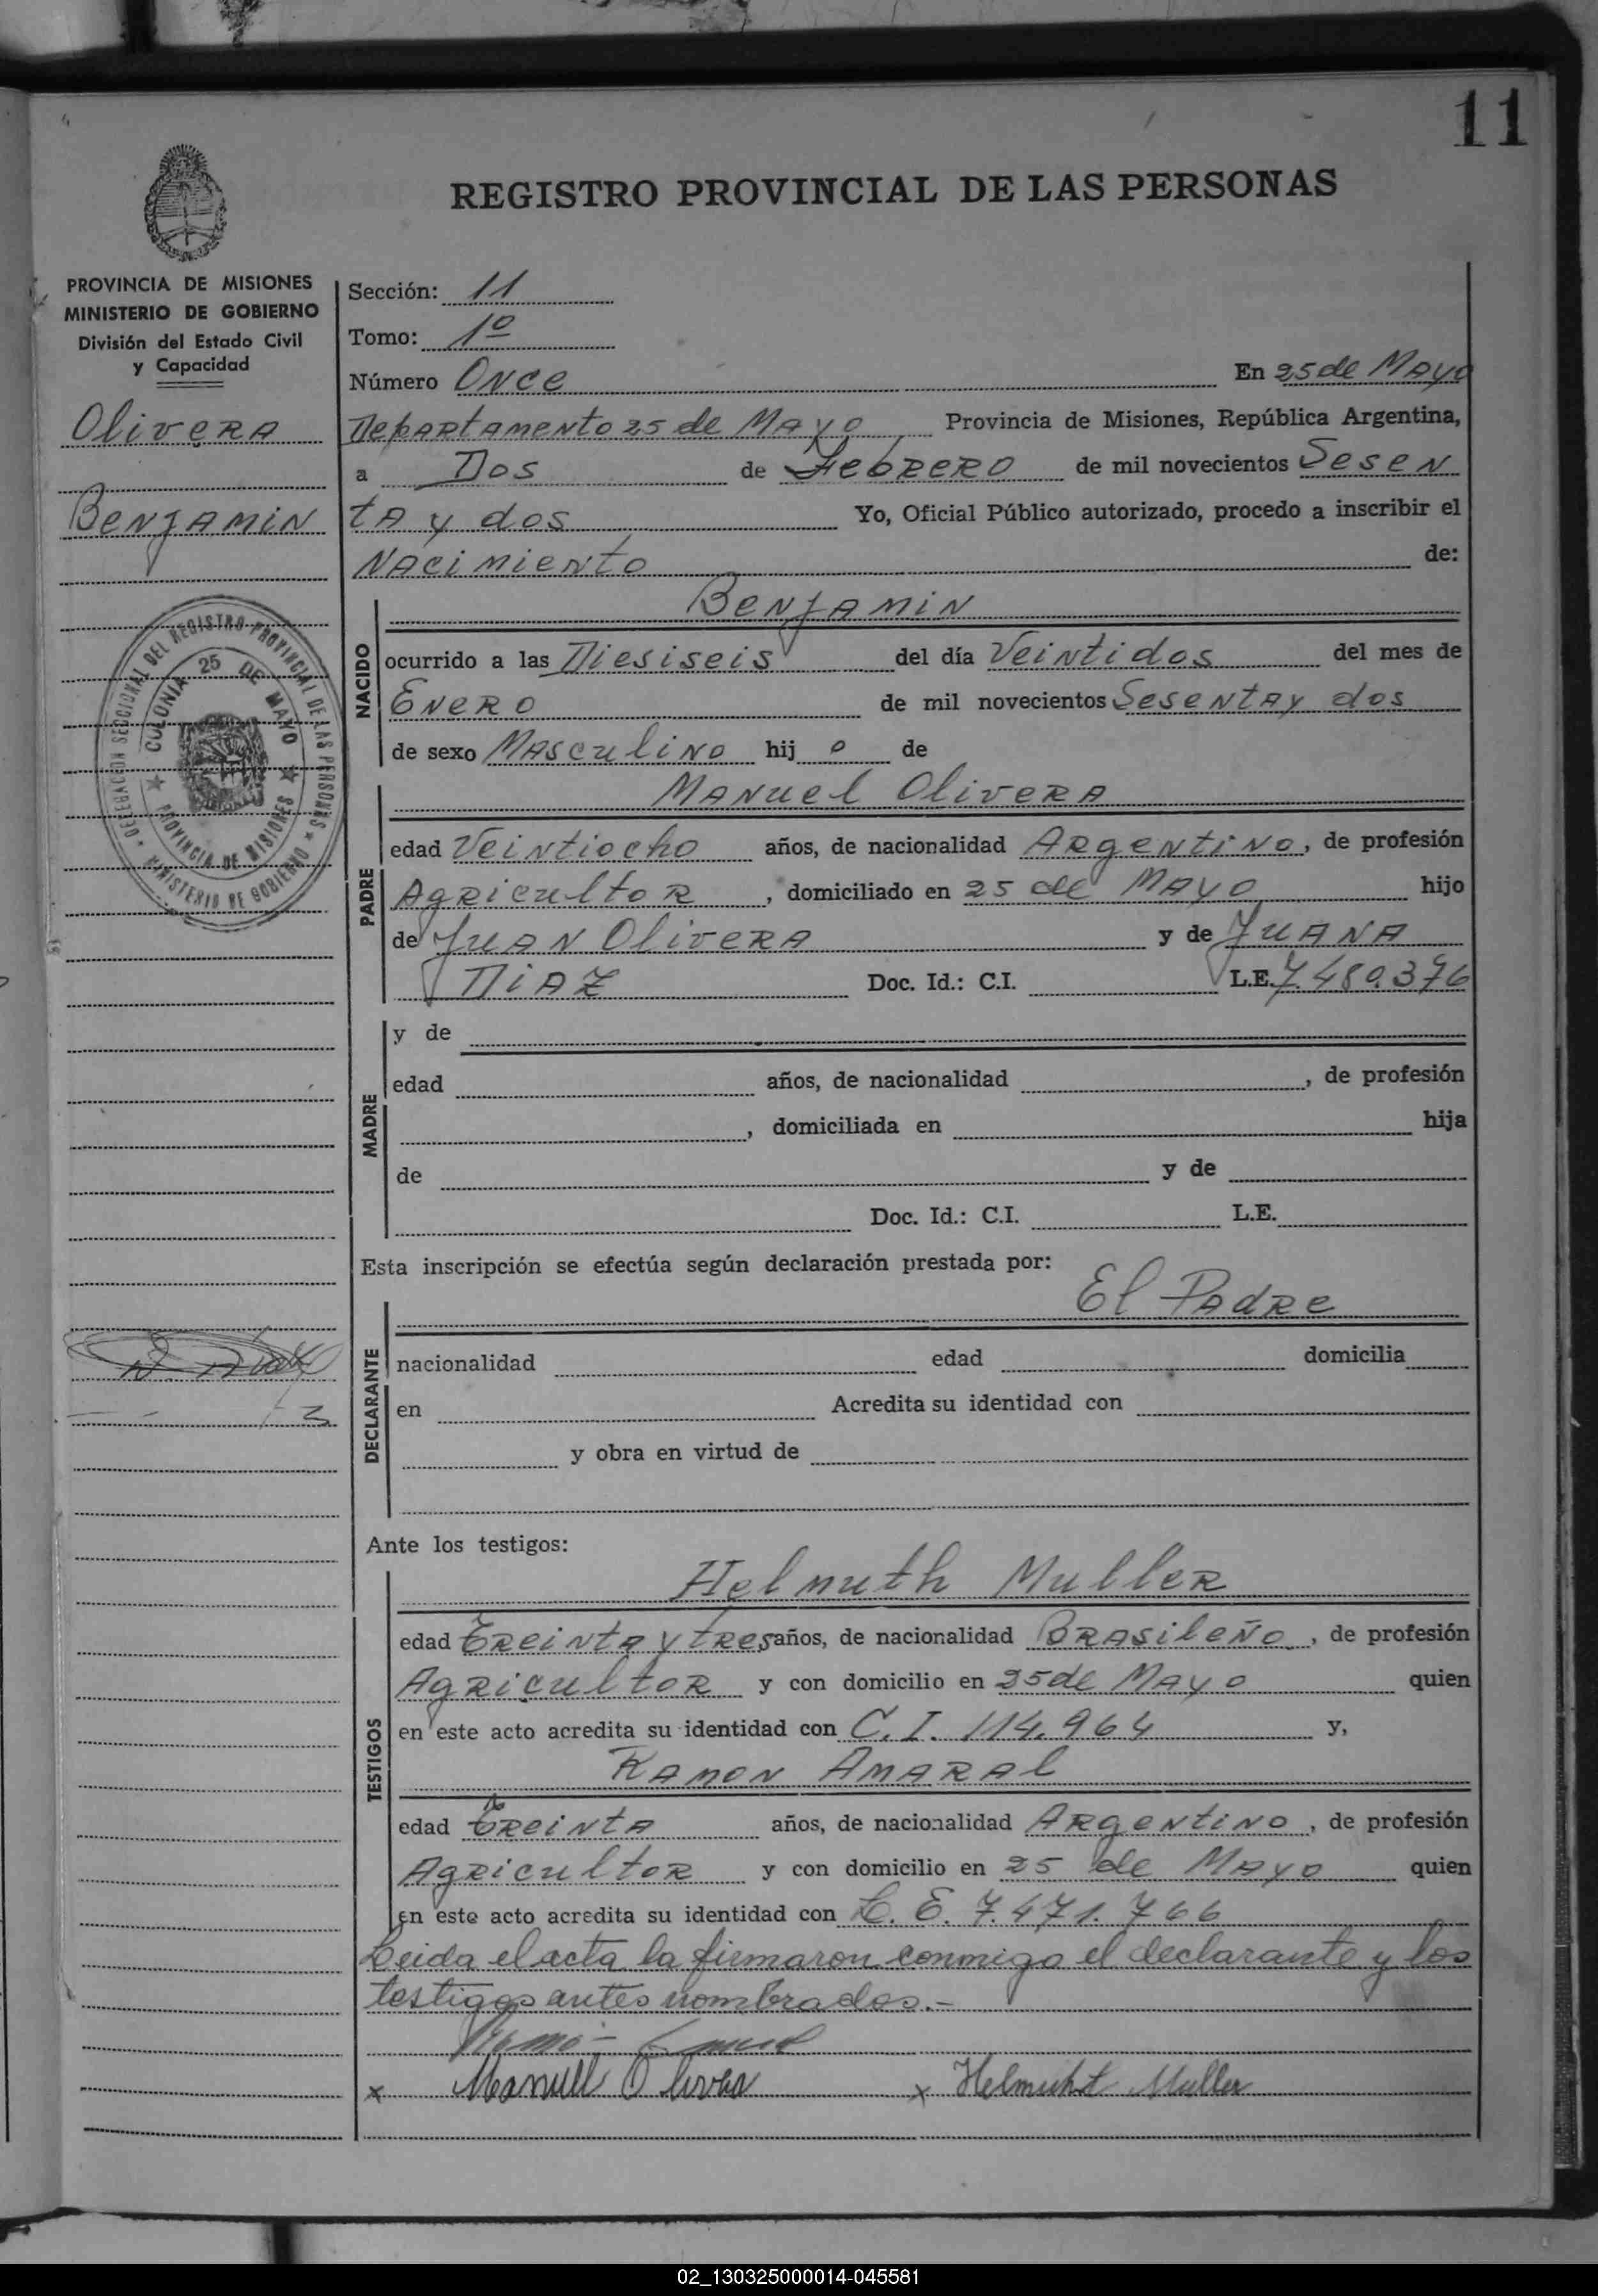 11
REGISTRO PROVINCIAL DE LAS PERSONAS
PROVINCIA DE MISIONES
MINISTERIO DE GOBIERNO
División del Estado Civil
y Capacidad
Olivera
Benjamin
DELEGACION SECCIONAL DEL REGISTRO PROVINCIAL DE LAS PERSONAS
MINISTERIO DE GOBIERNO
COLONIA 25 DE MAYO
PROVINCIA DE MISIONES
Sección: 11
Tomo: 1º
Número Once En 25 de Mayo
Departamento 25 de Mayo Provincia de Misiones, República Argentina,
a Dos de Febrero de mil novecientos Sesen
ta y dos Yo, Oficial Público autorizado, procedo a inscribir el
Nacimiento de:
NACIDO
Benjamin
ocurrido a las Diesiseis del día Veintidos del mes de
Enero de mil novecientos Sesenta y dos
de sexo Masculino hij o de
PADRE
Manuel Olivera
edad Veintiocho años, de nacionalidad Argentino, de profesión
Agricultor, domiciliado en 25 de Mayo hijo
de Juan Olivera y de Juana
Diaz Doc. Id.: C.I. L.E. 7.480.376
MADRE
y de
edad años, de nacionalidad , de profesión
, domiciliada en hija
de y de
Doc. Id.: C.I. L.E.
Esta inscripción se efectúa según declaración prestada por:
El Padre
DECLARANTE
nacionalidad edad domicilia
en Acredita su identidad con
y obra en virtud de
Ante los testigos:
TESTIGOS
Helmuth Muller
edad Treinta y tres años, de nacionalidad Brasileño, de profesión
Agricultor y con domicilio en 25 de Mayo quien
en este acto acredita su identidad con C.I. 114.964 y,
Ramon Amaral
edad Treinta años, de nacionalidad Argentino, de profesión
Agricultor y con domicilio en 25 de Mayo quien
en este acto acredita su identidad con L.E. 7.471.766
Leida el acta la firmaron conmigo el declarante y los
testigos antes nombrados.-
x Manuel Olivera x Helmuht Muller
02_130325000014-045581